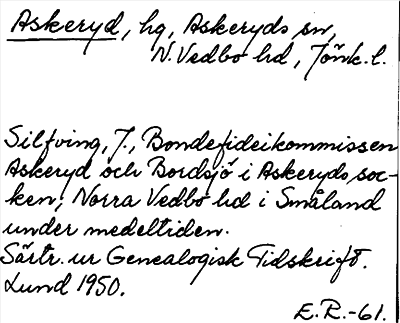 Askeryd, hg, Askeryds sn,
N. Vedbo hd, Jönk. l.
Silfving, J., Bondefideikommissen
Askeryd och Bordsjö i Askeryds soc-
ken, Norra Vedbo hd i Småland
under medeltiden.
Särtr. ur Genealogisk Tidskrift.
Lund 1950.
E.R.-61.